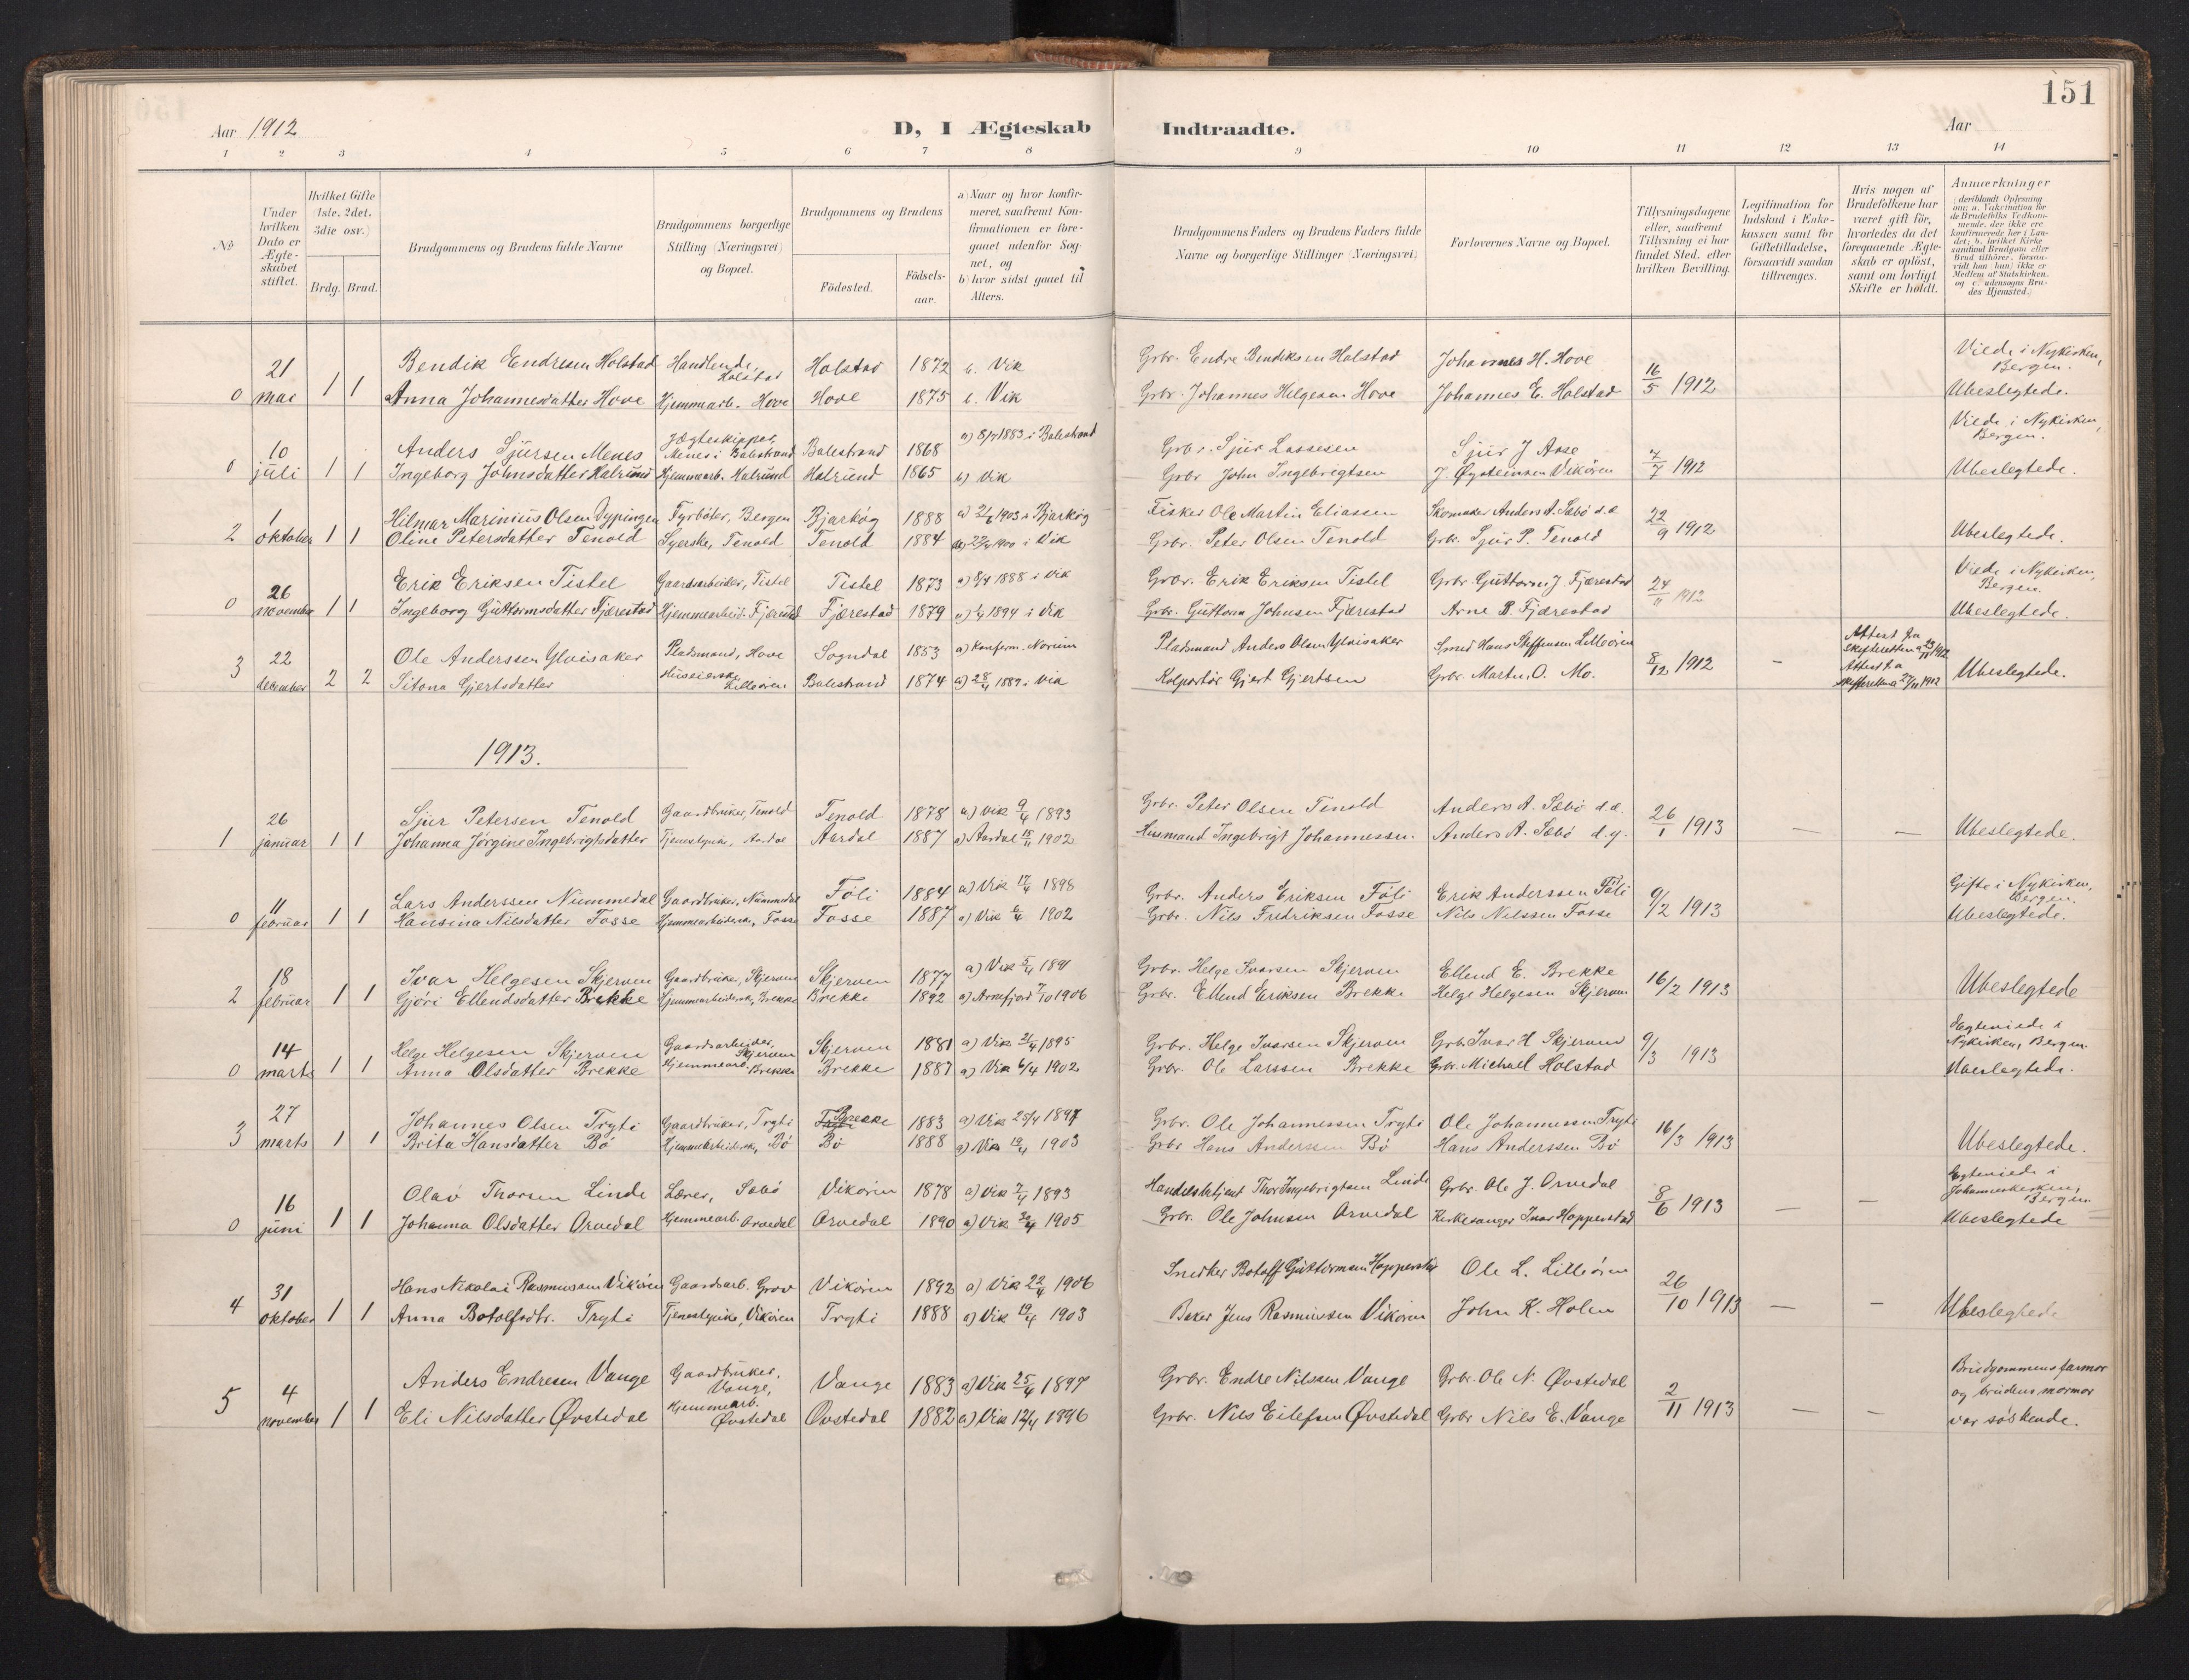 151
Aar 1912 D, I Ægteskab Indtraadte. Aar
1 2 3 4 5 6 7 8 9 10 11 12 13 14
No
Under hvilken Dato er Ægteskabet stiftet.
Hvilket Gifte (1ste, 2det, 3die osv.)
Brdg. Brud.
Brudgommens og Brudens fulde Navne
Brudgommens borgerlige Stilling (Næringsvei) og Bopæl.
Brudgommens og Brudens
Födested. Födsels-aar.
a) Naar og hvor konfirmeret, saafremt Konfirmationen er foregaaet udenfor Sognet, og
b) hvor sidst gaaet til Alters.
Brudgommens Faders og Brudens Faders fulde Navne og borgerlige Stillinger (Næringsvei)
Forlovernes Navne og Bopæl.
Tillysningsdagene eller, saafremt Tillysning ei har fundet Sted, efter hvilken Bevilling.
Legitimation for Indskud i Enkekassen samt for Giftetilladelse, forsaavidt saadan tiltrænges.
Hvis nogen af Brudefolkene har været gift før, hvorledes da det foregaaende Ægteskab er oplöst, samt om lovligt Skifte er holdt.
Anmærkninger (deriblandt Oplysning om: a. Vakcination for de Brudefolks Vedkommende, der ikke ere konfirmerede her i Landet; b. hvilket Kirkesamfund Brudgom eller Brud tilhörer, forsaavidt han (hun) ikke er Medlem af Statskirken, og c. udensogns Brudes Hjemsted.)
Bendik Endresen Holstad Handlende, Holstad Holstad 1872 b. Vik Grbr. Endre Bendiksen Holstad Johannes H. Hove Viede i Nykirken, Bergen.
0 21 mai 1 1 Anna Johannesdatter Hove Hjemmearb. Hove Hove 1875 b. Vik Grbr. Johannes Helgesen Hove Johannes E. Holstad 16/5 1912 Ubeslegtede.
Anders Sjursen Menes Jægteskipper, Menes i Balestrand Balestrand 1868 a) 8/7 1883 i Balestrand Grbr. Sjur Lassesen Sjur J Aase Viede i Nykirken, Bergen.
0 10 juli 1 1 Ingeborg Johnsdatter Halrund Hjemmearb. Halrund Halrund 1865 b) Vik Grbr John Ingebrigtsen J. Øysteinsen Vikören 7/7 1912 Ubeslegtede.
Hilmar Marinius Olsen Dypingen Fyrböter, Bergen Bjarköy 1888 a) 21/6 1903 i Bjarköy Fisker Ole Martin Eliassen Skomaker Anders A. Sæbö d.e.
2 1 oktober 1 1 Oline Petersdatter Tenold Syerske, Tenold Tenold 1884 a) 22/4 1900 i Vik Grbr. Peter Olsen Tenold Grbr. Sjur P. Tenold 22/9 1912 Ubeslegtede.
Erik Eriksen Tistel Gaardsarbeider, Tistel Tistel 1873 a) 8/4 1888 i Vik Grbr. Erik Eriksen Tistel Grbr. Guttorm J. Fjærestad Viede i Nykirken, Bergen.
0 26 november 1 1 Ingeborg Guttormsdatter Fjærestad Hjemmearbeid. Fjærestad Fjærestad 1879 a) 1/4 1894 i Vik Grbr. Guttorm Johnsen Fjærestad Arne B. Fjærestad 24/11 1912 Ubeslegtede.
Ole Anderssen Ylvisaker Pladsmand, Hove Sogndal 1853 a) Konferm. Norum Pladsmand Anders Olsen Ylvisaker Smed Hans Steffensen Lilleören Attest fra Skifteretten
3 22 desember 2 2 Sitona Gjertsdatter Husseierske Lilleören Balestrand 1874 a) 28/4 1889 i Vik Kolportör Gjert Gjertsen Grbr. Martin O. Mo. 8/12 1912 — Attest f.a skifteretten a 27/11 1912 Ubeslegtede.
1913.
Sjur Petersen Tenold Gaardbruker, Tenold Tenold 1878 a) Vik 9/4 1893 Grbr. Peter Olsen Tenold Anders A. Sæbö d.e.
1 26 januar 1 1 Johanna Jörgine Ingebrigtsdatter Tjenestepike, Aardal Aardal 1887 a) Aardal 15/11 1902 Husmand Ingebrigt Johannessen. Anders A. Sæbö d.y. 26/1 1913 — — Ubeslegtede.
Lars Anderssen Nummedal Gaardbruker, Nummedal Föli 1884 a) Vik 17/4 1898 Grbr. Anders Eriksen Föli Erik Anderssen Föli Gifte i Nykirken, Bergen.
0 11 februar 1 1 Hansina Nilsdatter Fosse Hjemmearbeiderske, Fosse Fosse 1887 a) Vik 6/4 1902 Grbr. Nils Fredriksen Fosse Nils Nilssen Fosse 9/2 1913 Ubeslegtede.
Ivar Helgesen Skjerven Gaardbruker, Skjerven Skjerven 1877 a) Vik 5/4 1891 Grbr. Helge Ivarsen Skjerven Ellend E. Brekke
2 18 februar 1 1 Gjöri Ellendsdatter Brekke Hjemmearbeiderske, Brekke Brekke 1892 a) Arnefjord 7/10 1906 Grbr. Ellend Eriksen Brekke Helge Helgesen Skjerven 16/2 1913 Ubeslegtede
Helge Helgesen Skjerven Gaardsarbeider, Skjerven Skjerven 1881 a) Vik 21/4 1895 Grbr. Helge Ivarsen Skjerven Grbr Ivar H Skjerven Egteviede i Nykirken, Bergen.
0 14 marts 1 1 Anna Olsdatter Brekke Hjemmearb. Brekke Brekke 1887 a) Vik 6/4 1902 Grbr. Ole Larssen Brekke Grbr. Michael Holstad 9/3 1913 Ubeslegtede.
Johannes Olsen Tryti Gaardbruker, Tryti Brekke 1883 a) Vik 25/4 1897 Grbr. Ole Johannessen Tryti Ole Johannessen Tryti
3 27 marts 1 1 Brita Hansdatter Bö Hjemmearbeiderske, Bö Bö 1888 a) Vik 19/4 1903 Grbr Hans Anderssen Bö Hans Anderssen Bö 16/3 1913 Ubeslegtede.
Olav Thorsen Linde Lærer, Sæbö Vikören 1878 a) Vik 9/4 1893 Handelsbetjent Thor Ingebrigtsen Linde Grbr. Ole J. Orvedal Egteviede i Johanneskirken, Bergen
0 16 juni 1 1 Johanna Olsdatter Orvedal Hjemmearb. Orvedal Orvedal 1890 a) Vik 30/4 1905 Grbr. Ole Johnsen Orvedal Kirkesanger Ivar Hopperstad 8/6 1913 — — Ubeslegtede
Hans Nikolai Rasmussen Vikören Gaardsarb. Grov Vikören 1892 a) Vik 22/4 1906 Snedker Botolf Guttormsen Hopperstad Ole L. Lilleören
4 31 oktober 1 1 Anna Botolfsdtr. Tryti Tjenestepike, Vikören Tryti 1888 a) Vik 19/4 1903 Baker Jens Rasmussen Vikören John K. Holen 26/10 1913 — — Ubeslegtede
Anders Endresen Vange Gaardbruker, Vange, Vange 1883 a) Vik 25/4 1897 Grbr. Endre Nilssen Vange Grbr. Ole N. Øvstedal Brudgommens farmor og brudens mormor
5 4 november 1 1 Eli Nilsdatter Øvstedal Hjemmearb. Øvstedal Øvstedal 1882 a) Vik 12/4 1896 Grbr. Nils Eilefsen Øvstedal Grbr Nils E. Vange 2/11 1913 — — var söskende.